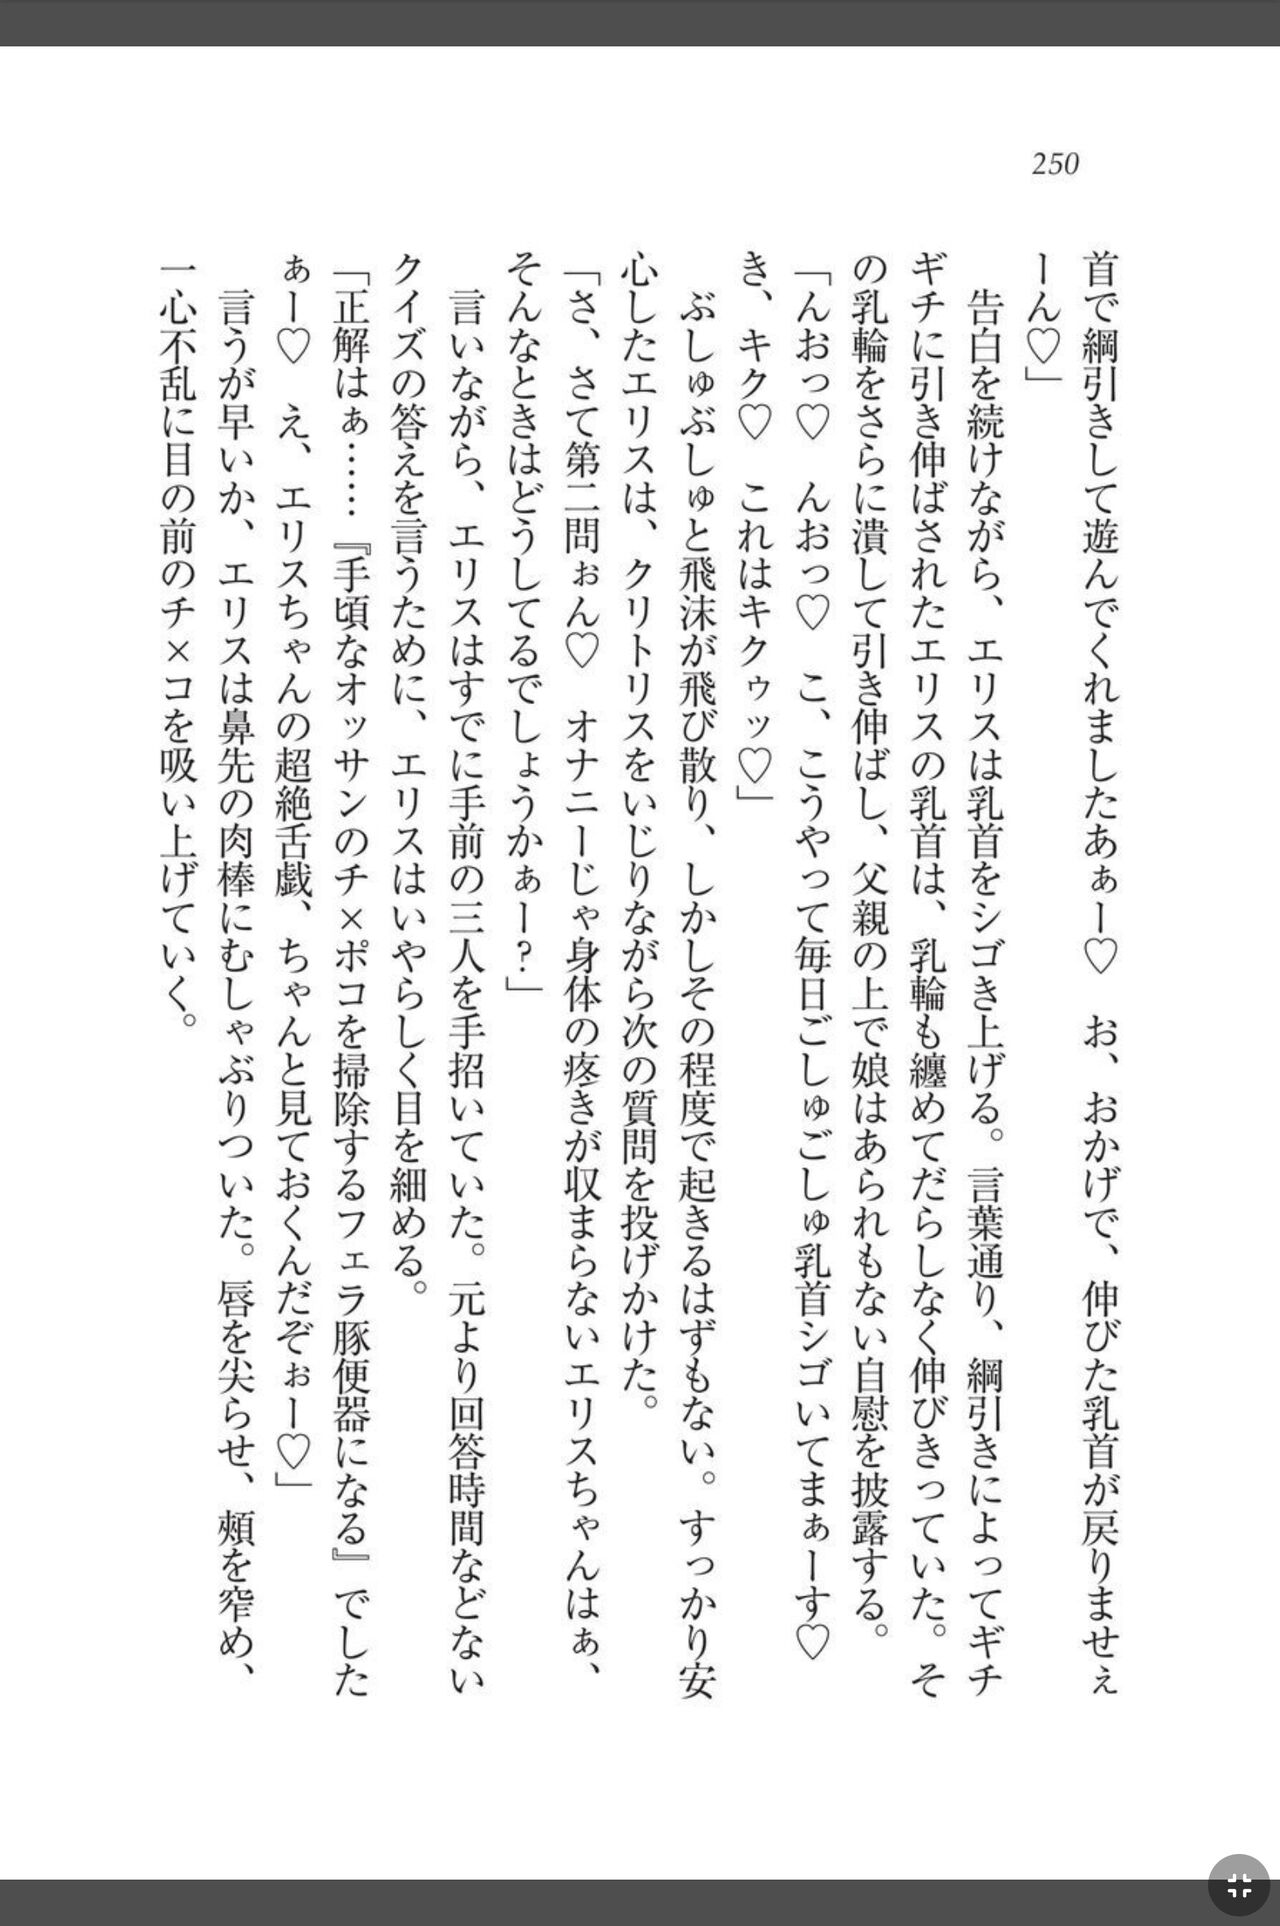 250
首で綱引きして遊んでくれましたあぁー♡　お、おかげで、伸びた乳首が戻りませぇ
ーん♡」
　告白を続けながら、エリスは乳首をシゴき上げる。言葉通り、綱引きによってギチ
ギチに引き伸ばされたエリスの乳首は、乳輪も纏めてだらしなく伸びきっていた。そ
の乳輪をさらに潰して引き伸ばし、父親の上で娘はあられもない自慰を披露する。
「んおっ♡　んおっ♡　こ、こうやって毎日ごしゅごしゅ乳首シゴいてまぁーす♡
き、キク♡　これはキクゥッ♡」
　ぶしゅぶしゅと飛沫が飛び散り、しかしその程度で起きるはずもない。すっかり安
心したエリスは、クリトリスをいじりながら次の質問を投げかけた。
「さ、さて第二問ぉん♡　オナニーじゃ身体の疼きが収まらないエリスちゃんはぁ、
そんなときはどうしてるでしょうかぁー?」
　言いながら、エリスはすでに手前の三人を手招いていた。元より回答時間などない
クイズの答えを言うために、エリスはいやらしく目を細める。
「正解はぁ……『手頃なオッサンのチ×ポコを掃除するフェラ豚便器になる』でした
ぁー♡　え、エリスちゃんの超絶舌戯、ちゃんと見ておくんだぞぉー♡」
　言うが早いか、エリスは鼻先の肉棒にむしゃぶりついた。唇を尖らせ、頬を窄め、
一心不乱に目の前のチ×コを吸い上げていく。